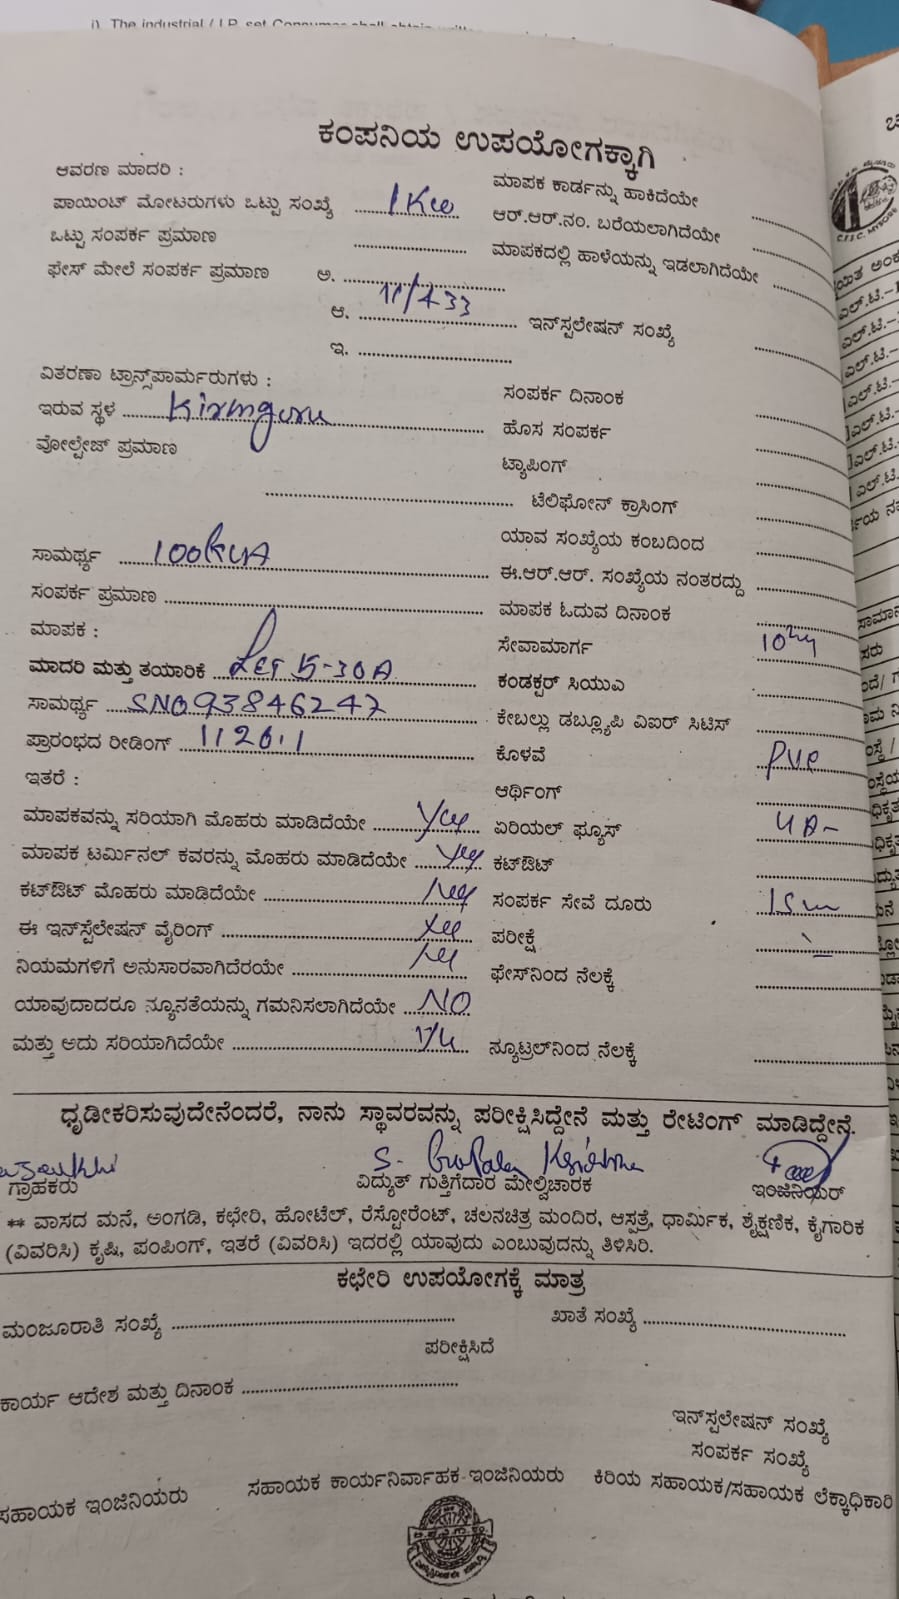 i). The industrial / I.P. set Consumer shall obtain
ಕಂಪನಿಯ ಉಪಯೋಗಕ್ಕಾಗಿ
ಆವರಣ ಮಾದರಿ :
ಮಾಪಕ ಕಾರ್ಡನ್ನು ಹಾಕಿದೆಯೇ ....................
ಪಾಯಿಂಟ್ ಮೋಟರುಗಳು ಒಟ್ಟು ಸಂಖ್ಯೆ 1 Kw ಆರ್.ಆರ್.ನಂ. ಬರೆಯಲಾಗಿದೆಯೇ ....................
ಒಟ್ಟು ಸಂಪರ್ಕ ಪ್ರಮಾಣ .................... ಮಾಪಕದಲ್ಲಿ ಹಾಳೆಯನ್ನು ಇಡಲಾಗಿದೆಯೇ ....................
ಫೇಸ್ ಮೇಲೆ ಸಂಪರ್ಕ ಪ್ರಮಾಣ ಅ. ....................
ಆ. 11/433 ಇನ್‌ಸ್ಪಲೇಷನ್ ಸಂಖ್ಯೆ ....................
ಇ. ....................
ವಿತರಣಾ ಟ್ರಾನ್ಸ್‌ಪಾರ್ಮರುಗಳು :
ಸಂಪರ್ಕ ದಿನಾಂಕ ....................
ಇರುವ ಸ್ಥಳ Kirmguru ಹೊಸ ಸಂಪರ್ಕ ....................
ವೋಲ್ಟೇಜ್ ಪ್ರಮಾಣ ಟ್ಯಾಪಿಂಗ್ ....................
.................... ಟೆಲಿಫೋನ್ ಕ್ರಾಸಿಂಗ್ ....................
ಯಾವ ಸಂಖ್ಯೆಯ ಕಂಬದಿಂದ ....................
ಸಾಮರ್ಥ್ಯ 100 KVA ಈ.ಆರ್.ಆರ್. ಸಂಖ್ಯೆಯ ನಂತರದ್ದು ....................
ಸಂಪರ್ಕ ಪ್ರಮಾಣ .................... ಮಾಪಕ ಓದುವ ದಿನಾಂಕ ....................
ಮಾಪಕ : ಸೇವಾಮಾರ್ಗ
ಮಾದರಿ ಮತ್ತು ತಯಾರಿಕೆ L&T 5-30A ಕಂಡಕ್ಟರ್ ಸಿಯುಎ ....................
ಸಾಮರ್ಥ್ಯ SNO 93846247 ಕೇಬಲ್ಲು ಡಬ್ಲ್ಯೂಪಿ ವಿಐರ್ ಸಿಟಿಸ್ ....................
ಪ್ರಾರಂಭದ ರೀಡಿಂಗ್ ಕೊಳವೆ PVC
ಇತರೆ : ಆರ್ಥಿಂಗ್ ....................
ಮಾಪಕವನ್ನು ಸರಿಯಾಗಿ ಮೊಹರು ಮಾಡಿದೆಯೇ Yes ಏರಿಯಲ್ ಫ್ಯೂಸ್
ಮಾಪಕ ಟರ್ಮಿನಲ್ ಕವರನ್ನು ಮೊಹರು ಮಾಡಿದೆಯೇ Yes ಕಟ್‌ಔಟ್ ....................
ಕಟ್‌ಔಟ್ ಮೊಹರು ಮಾಡಿದೆಯೇ Yes ಸಂಪರ್ಕ ಸೇವೆ ದೂರು 15m
ಈ ಇನ್‌ಸ್ಪೆಲೇಷನ್ ವೈರಿಂಗ್ Yes ಪರೀಕ್ಷೆ ....................
ನಿಯಮಗಳಿಗೆ ಅನುಸಾರವಾಗಿದೆರಯೇ Yes ಫೇಸ್‌ನಿಂದ ನೆಲಕ್ಕೆ ....................
ಯಾವುದಾದರೂ ನ್ಯೂನತೆಯನ್ನು ಗಮನಿಸಲಾಗಿದೆಯೇ NO
ಮತ್ತು ಅದು ಸರಿಯಾಗಿದೆಯೇ ನ್ಯೂಟ್ರಲ್‌ನಿಂದ ನೆಲಕ್ಕೆ ....................
ಧೃಡೀಕರಿಸುವುದೇನೆಂದರೆ, ನಾನು ಸ್ಥಾವರವನ್ನು ಪರೀಕ್ಷಿಸಿದ್ದೇನೆ ಮತ್ತು ರೇಟಿಂಗ್ ಮಾಡಿದ್ದೇನೆ.
ಗ್ರಾಹಕರು ವಿದ್ಯುತ್ ಗುತ್ತಿಗೆದಾರ ಮೇಲ್ವಿಚಾರಕ ಇಂಜಿನಿಯರ್
** ವಾಸದ ಮನೆ, ಅಂಗಡಿ, ಕಛೇರಿ, ಹೋಟೆಲ್, ರೆಸ್ಟೋರೆಂಟ್, ಚಲನಚಿತ್ರ ಮಂದಿರ, ಆಸ್ಪತ್ರೆ, ಧಾರ್ಮಿಕ, ಶೈಕ್ಷಣಿಕ, ಕೈಗಾರಿಕ
(ವಿವರಿಸಿ) ಕೃಷಿ, ಪಂಪಿಂಗ್, ಇತರೆ (ವಿವರಿಸಿ) ಇದರಲ್ಲಿ ಯಾವುದು ಎಂಬುವುದನ್ನು ತಿಳಿಸಿರಿ.
ಕಛೇರಿ ಉಪಯೋಗಕ್ಕೆ ಮಾತ್ರ
ಮಂಜೂರಾತಿ ಸಂಖ್ಯೆ .................... ಖಾತೆ ಸಂಖ್ಯೆ ....................
ಪರೀಕ್ಷಿಸಿದೆ
ಕಾರ್ಯ ಆದೇಶ ಮತ್ತು ದಿನಾಂಕ ....................
ಇನ್‌ಸ್ಪಲೇಷನ್ ಸಂಖ್ಯೆ
ಸಂಪರ್ಕ ಸಂಖ್ಯೆ
ಸಹಾಯಕ ಇಂಜಿನಿಯರು ಸಹಾಯಕ ಕಾರ್ಯನಿರ್ವಾಹಕ ಇಂಜಿನಿಯರು ಕಿರಿಯ ಸಹಾಯಕ/ಸಹಾಯಕ ಲೆಕ್ಕಾಧಿಕಾರಿ